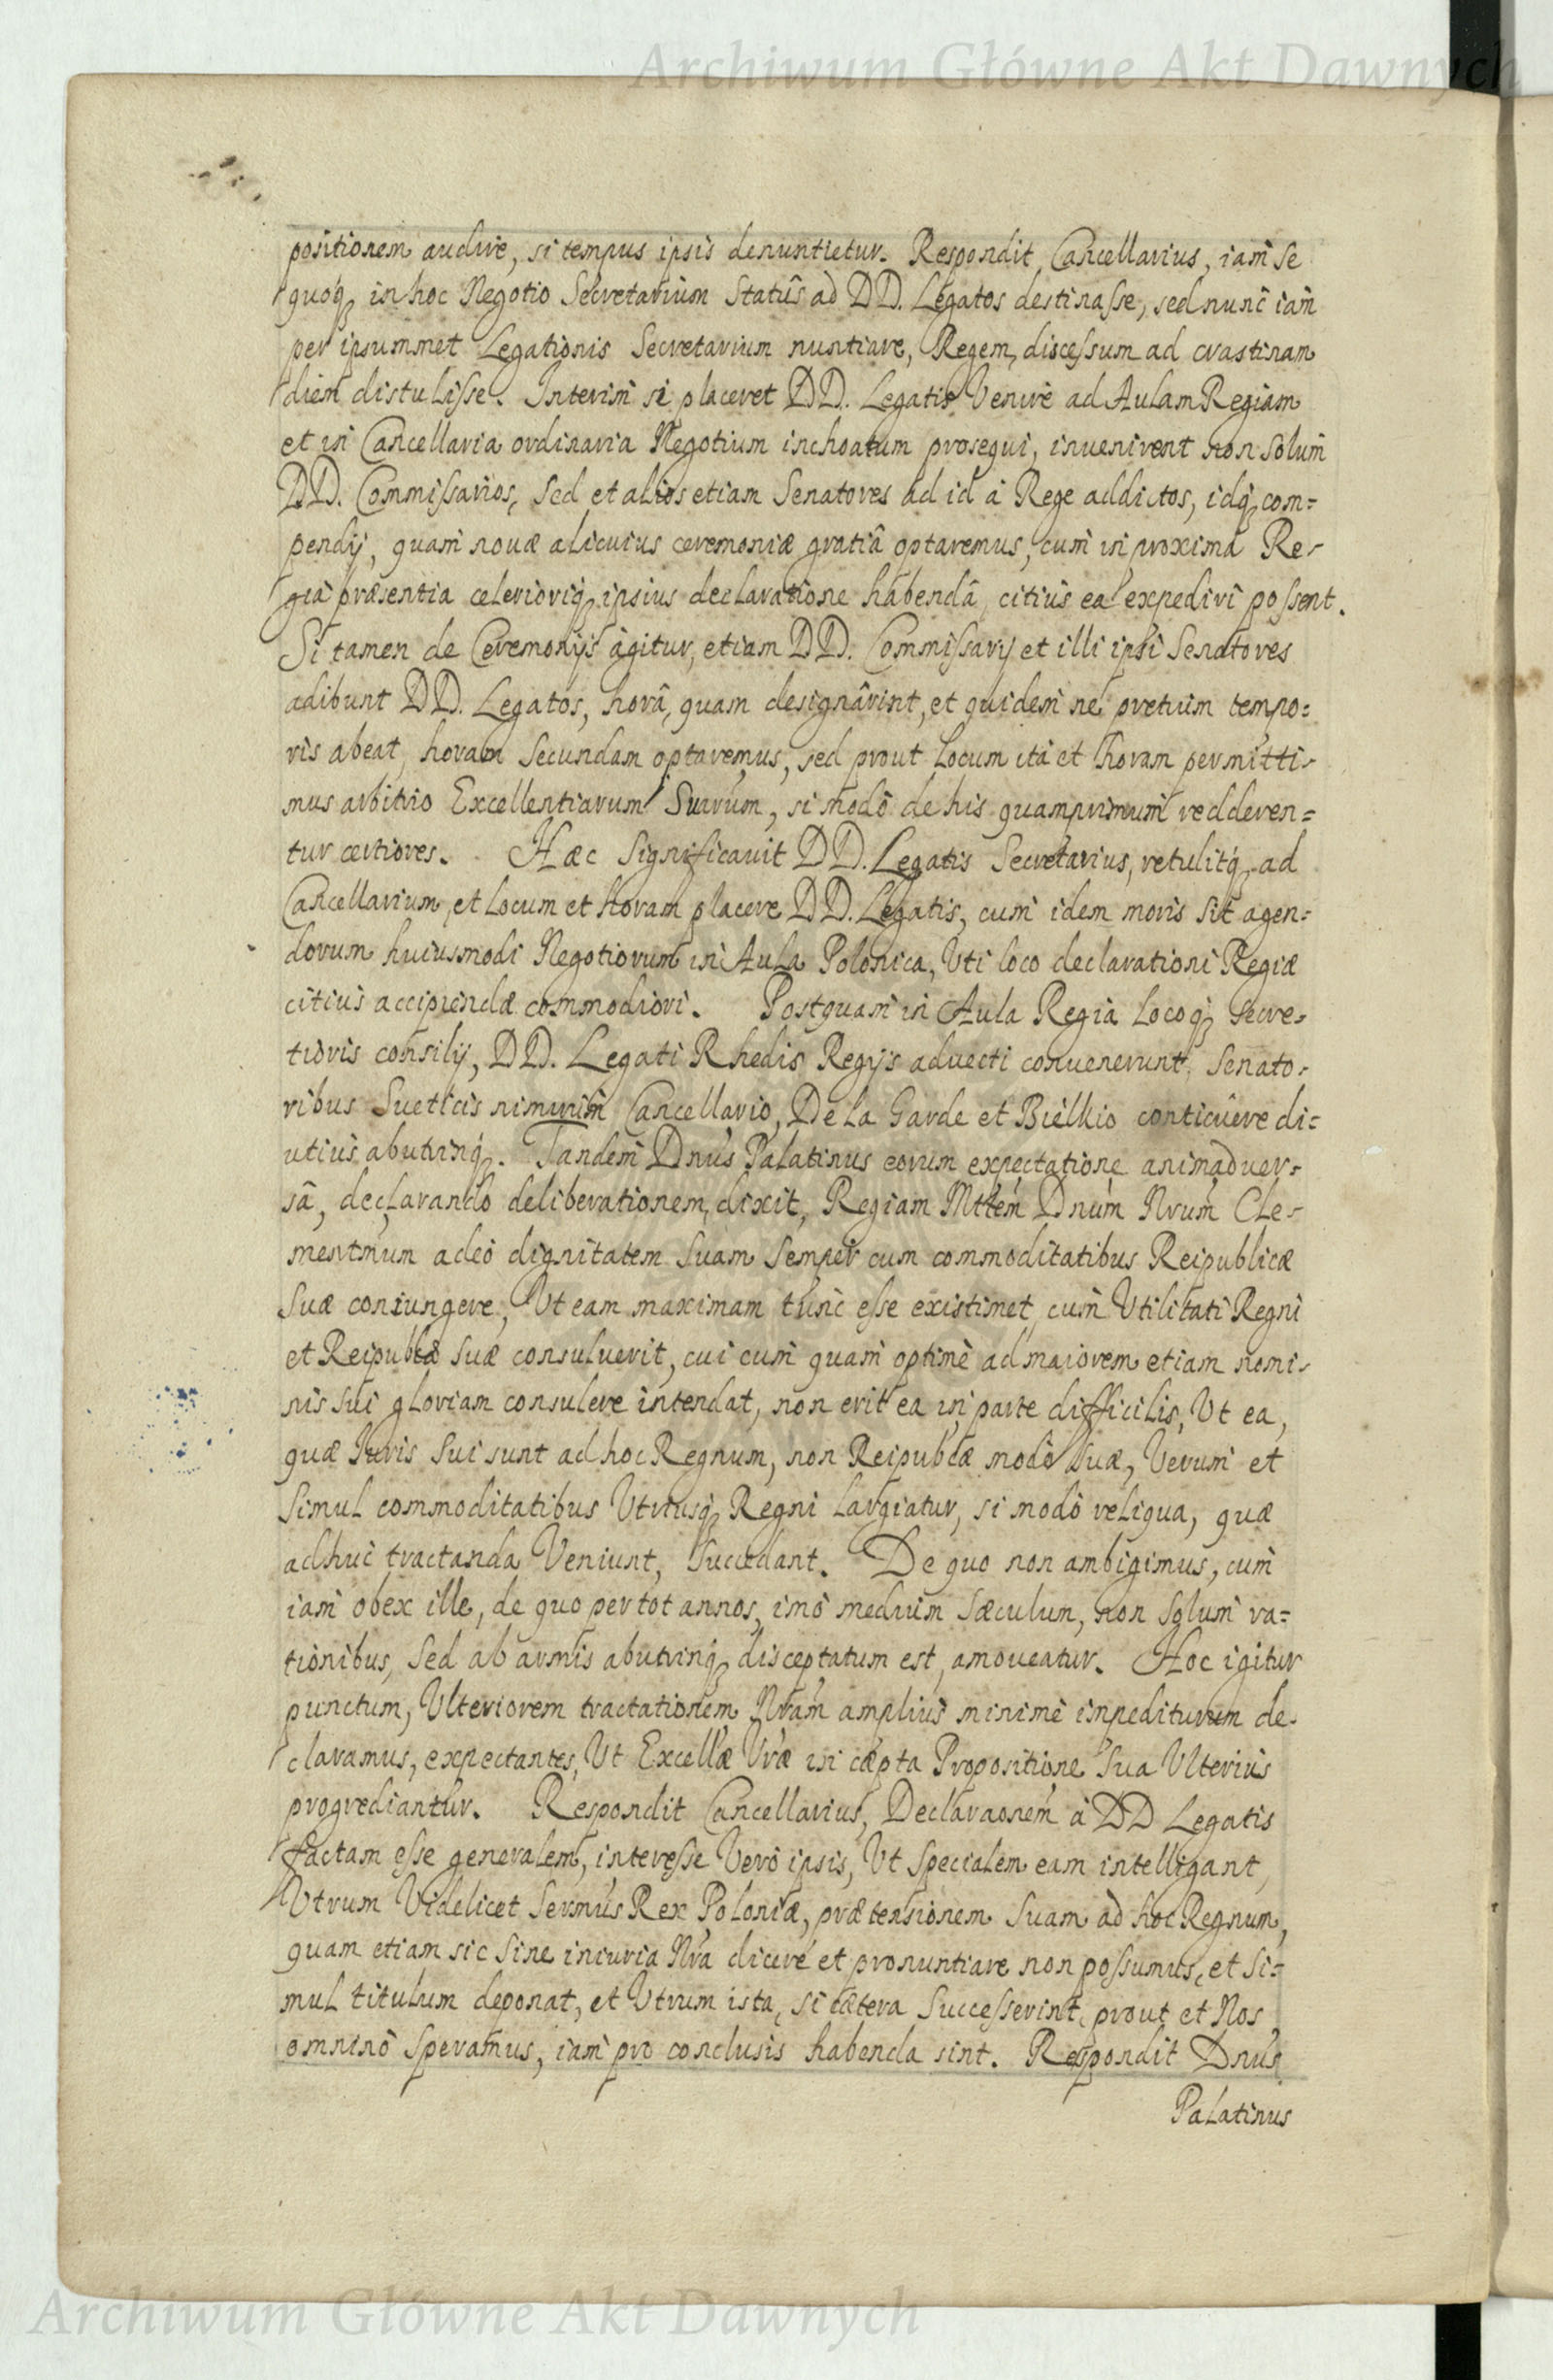 Archiwum Główne Akt Dawnych
positionem audire, si tempus ipsis denuntietur. Respondit Cancellarius, iam se
quoq; in hoc Negotio Secretarium Statûs ad DD. Legatos destinasse, sed nunc iam
per ipsummet Legationis Secretarium nuntiare, Regem discessum ad crastinam
diem distulisse. Interim si placeret DD. Legatis Venire ad Aulam Regiam
et in Cancellaria ordinaria Negotium inchoatum prosequi, invenirent non solum
DD. Commissarios, sed et alios etiam Senatores ad id à Rege addictos, idq; com=
pendij, quam novæ alicuius ceremoniæ gratiâ optaremus, cum in proxima Re-
gia præsentia celerioriq; ipsius declaratione habendâ, citius ea expediri possent.
Si tamen de Ceremonijs agitur, etiam DD. Commissarij et illi ipsi Senatores
adibunt DD. Legatos, horâ, quam designârint, et quidem ne pretium tempo=
ris abeat, horam secundam optaremus, sed prout Locum ità et horam permitti-
mus arbitrio Excellentiarum Suarum, si modò de his quamprimum redderen=
tur certiores. Hæc significavit DD. Legatis Secretarius, retulitq; ad
Cancellarium, et Locum et horam placere DD. Legatis, cum idem moris sit agen=
dorum huiusmodi Negotiorum in Aula Polonica, Uti loco declarationi Regiæ
citius accipiendæ commodiori. Postquam in Aula Regia Locoq; secre-
tioris consilij, DD. Legati Rhedis Regijs advecti convenerunt, Senato-
ribus Sueticis nimirum Cancellario, De La Garde et Bielkio conticuêre di=
utius abutrinq;. Tandem Dnus Palatinus eorum expectatione animadver-
sâ, declarando deliberationem, dixit, Regiam Mttem Dnum Nrum Cle-
mentmum adeò dignitatem suam semper cum commoditatibus Reipublicæ
suæ coniungere, Ut eam maximam tunc esse existimet, cum Utilitati Regni
et Reipublæ suæ consuluerit, cui cum quam optimè ad maiorem etiam nomi-
nis sui gloriam consulere intendat, non erit ea in parte difficilis, Ut ea,
quæ Iuris sui sunt ad hoc Regnum, non Reipublæ modò suæ, Verum et
simul commoditatibus Utriusq; Regni largiatur, si modò reliqua, quæ
adhuc tractanda Veniunt, succedant. De quo non ambigimus, cum
iam obex ille, de quo per tot annos, imò medium sæculum, non solum ra=
tionibus, sed ab armis abutrinq; disceptatum est, amoveatur. Hoc igitur
punctum, Ulteriorem tractationem Nram amplius minimè impediturum de-
claramus, expectantes, Ut Excellæ Vræ in cæpta Propositione sua Ulterius
progrediantur. Respondit Cancellarius, Declaraonem à DD Legatis
factam esse generalem, interesse Verò ipsis, Ut specialem eam intelligant,
Utrum Videlicet Sermus Rex Poloniæ, prætensionem suam ad hoc Regnum,
quam etiam sic sine iniuria Nra dicere et pronuntiare non possumus, et si=
mul titulum deponat, et Utrum ista, si cætera successerint, prout et Nos
omninò speramus, iam pro conclusis habenda sint. Respondit Dnus
Palatinus
Archiwum Główne Akt Dawnych